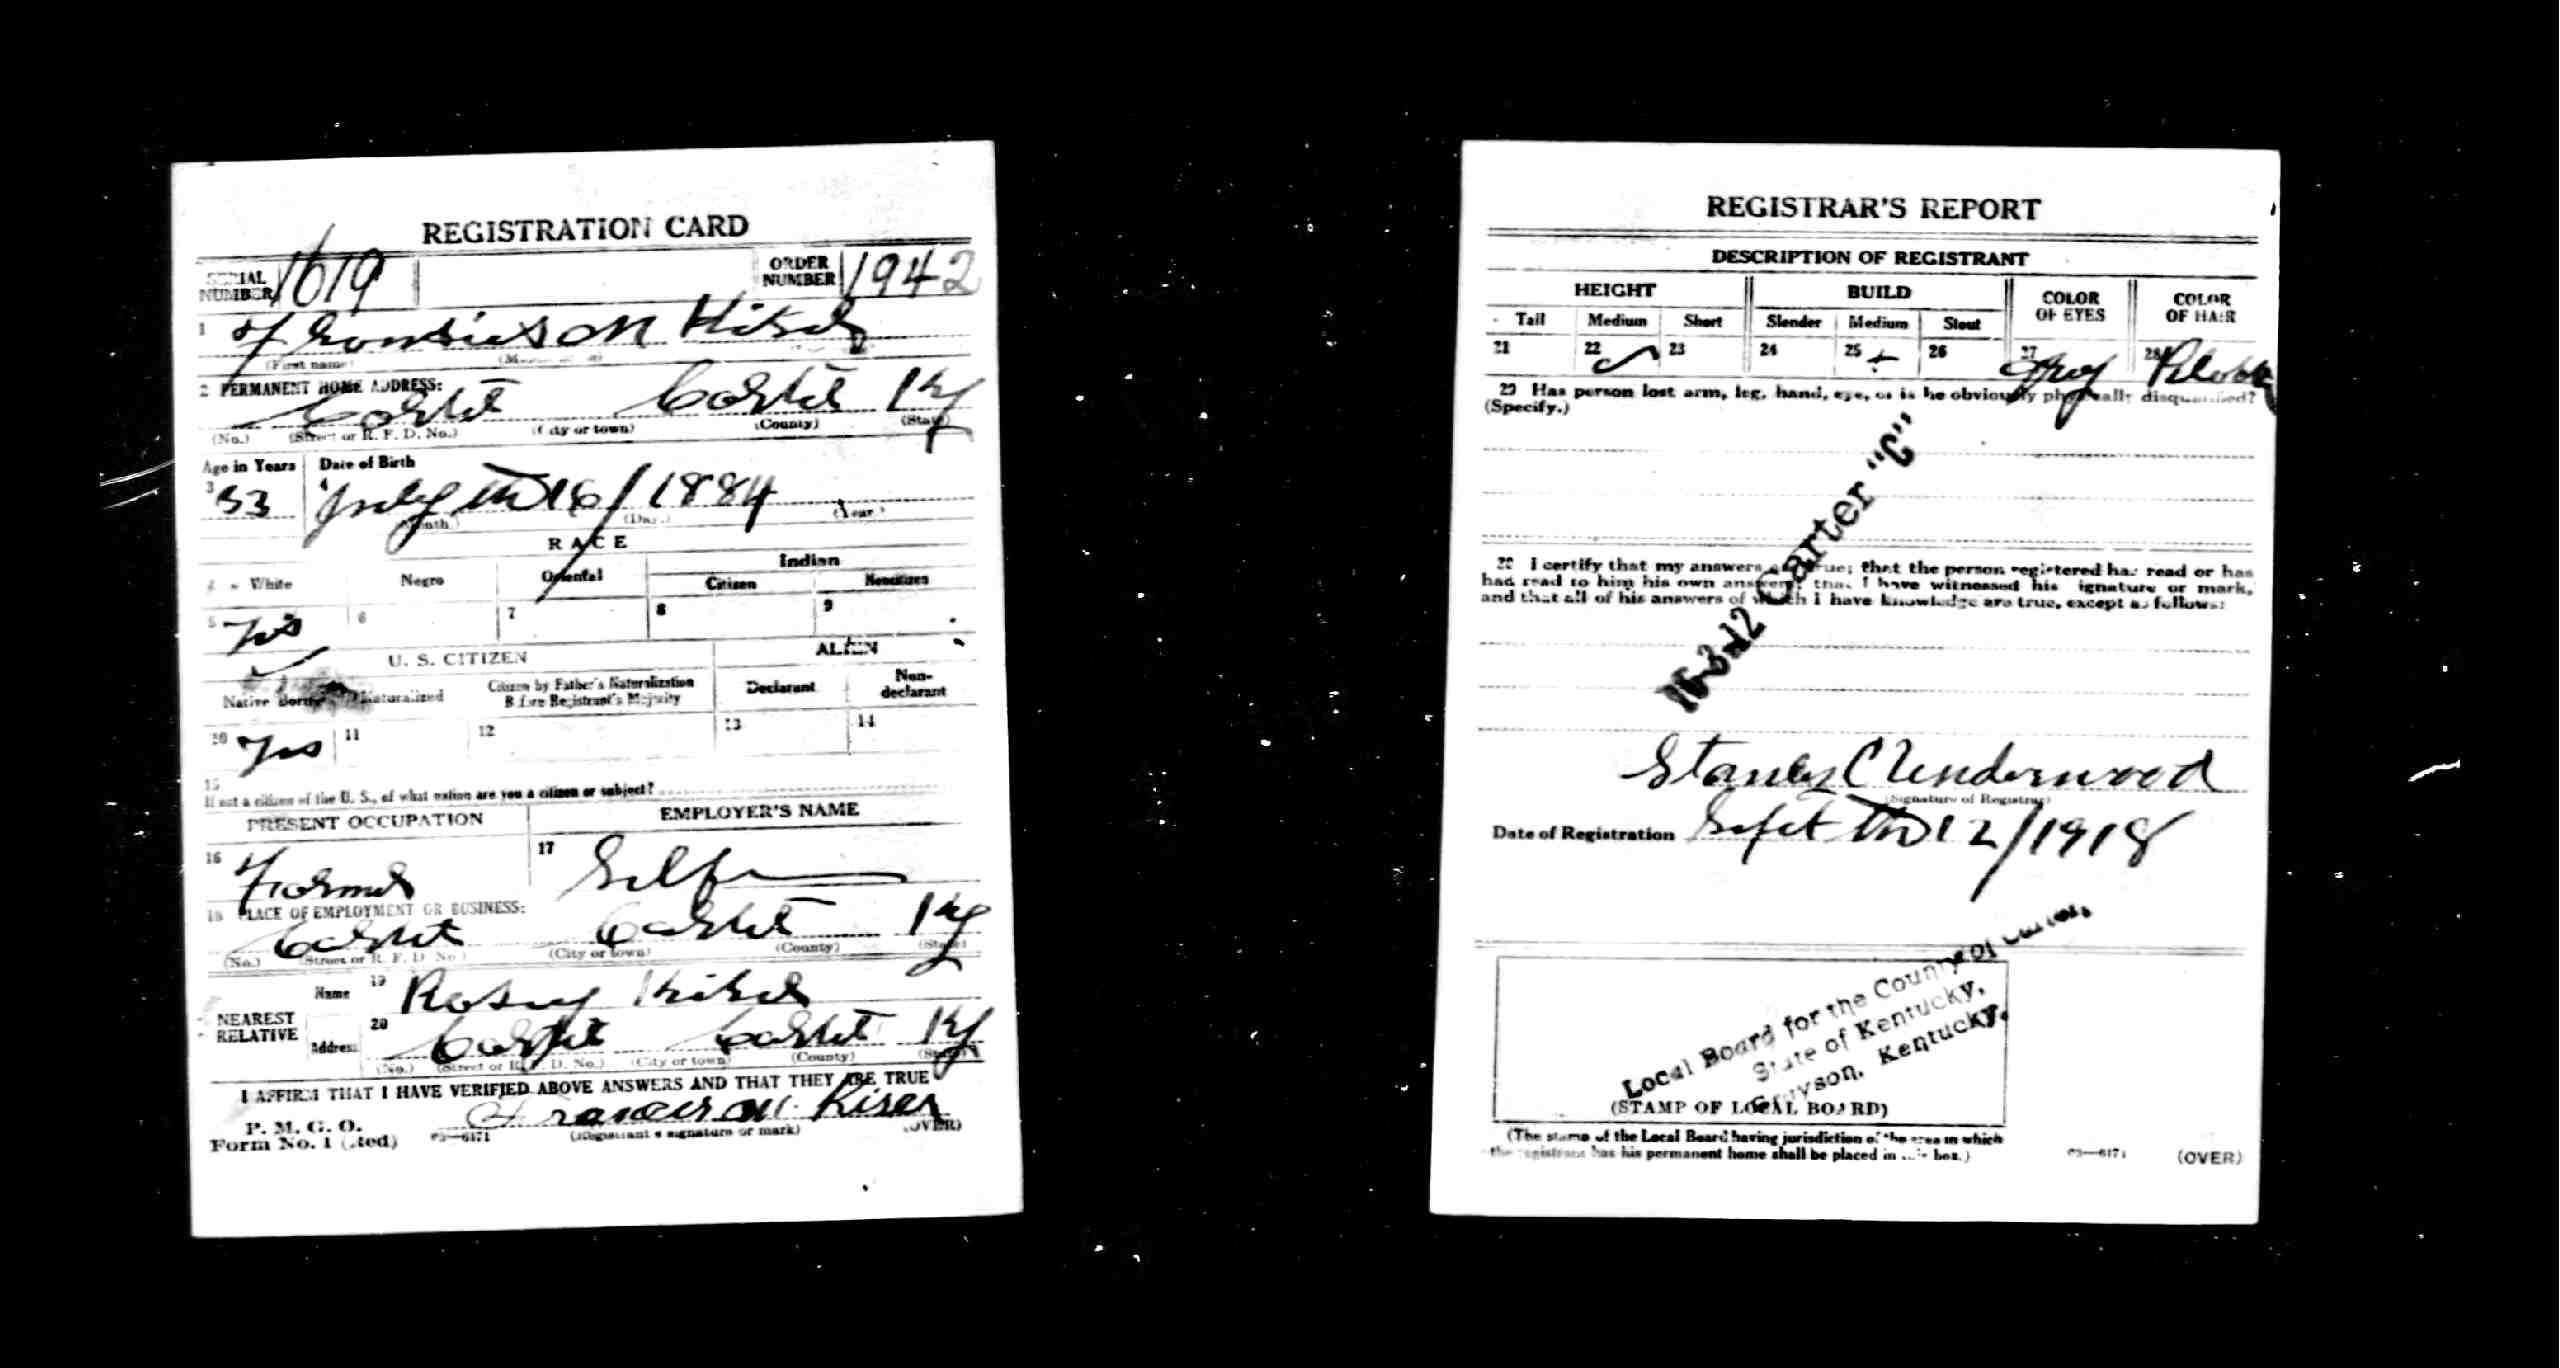 REGISTRATION CARD
SERIAL NUMBER 1619 ORDER NUMBER 1942
1 Francis M Kiser
(First name)
2 PERMANENT HOME ADDRESS:
Carter Carter Ky
(No.) (Street or R. F. D. No.) (City or town) (County) (State)
Age in Years Date of Birth
3 33 4 July th 16/1884
(Month.) (Day.) (Year.)
RACE
White Negro Oriental Indian
Citizen Noncitizen
5 Yes 6 7 8 9
U. S. CITIZEN ALIEN
Native Born Naturalized Citizen by Father's Naturalization Before Registrant's Majority Declarant Non-declarant
10 Yes 11 12 13 14
15
If not a citizen of the U. S., of what nation are you a citizen or subject?
PRESENT OCCUPATION EMPLOYER'S NAME
16 Farmer 17 Self
18 PLACE OF EMPLOYMENT OR BUSINESS:
Carter Carter Ky
(No.) (Street or R. F. D. No.) (City or town) (County) (State)
NEAREST RELATIVE Name 19 Kiser
Address 20 Carter Carter Ky
(No.) (Street or R. F. D. No.) (City or town) (County) (State)
I AFFIRM THAT I HAVE VERIFIED ABOVE ANSWERS AND THAT THEY ARE TRUE
P. M. G. O.
Form No. 1 (Red) 03—6171 Francis M. Kiser
(Registrant's signature or mark) (OVER)
REGISTRAR'S REPORT
DESCRIPTION OF REGISTRANT
HEIGHT BUILD COLOR OF EYES COLOR OF HAIR
Tall Medium Short Slender Medium Stout
21 22 23 24 25 + 26 27 Gray 28 Black
29 Has person lost arm, leg, hand, eye, or is he obviously physically disqualified?
(Specify.)
16-3-12 Carter "C"
I certify that my answers are true; that the person registered has read or has
had read to him his own answers; that I have witnessed his signature or mark,
and that all of his answers of which I have knowledge are true, except as follows:
Stanley C Underwood
(Signature of Registrar)
Date of Registration Sept th 12/1918
Local Board for the County of Carter,
State of Kentucky,
Grayson, Kentucky.
(STAMP OF LOCAL BOARD)
(The stamp of the Local Board having jurisdiction of the area in which
the registrant has his permanent home shall be placed in this box.)
03—6171 (OVER)